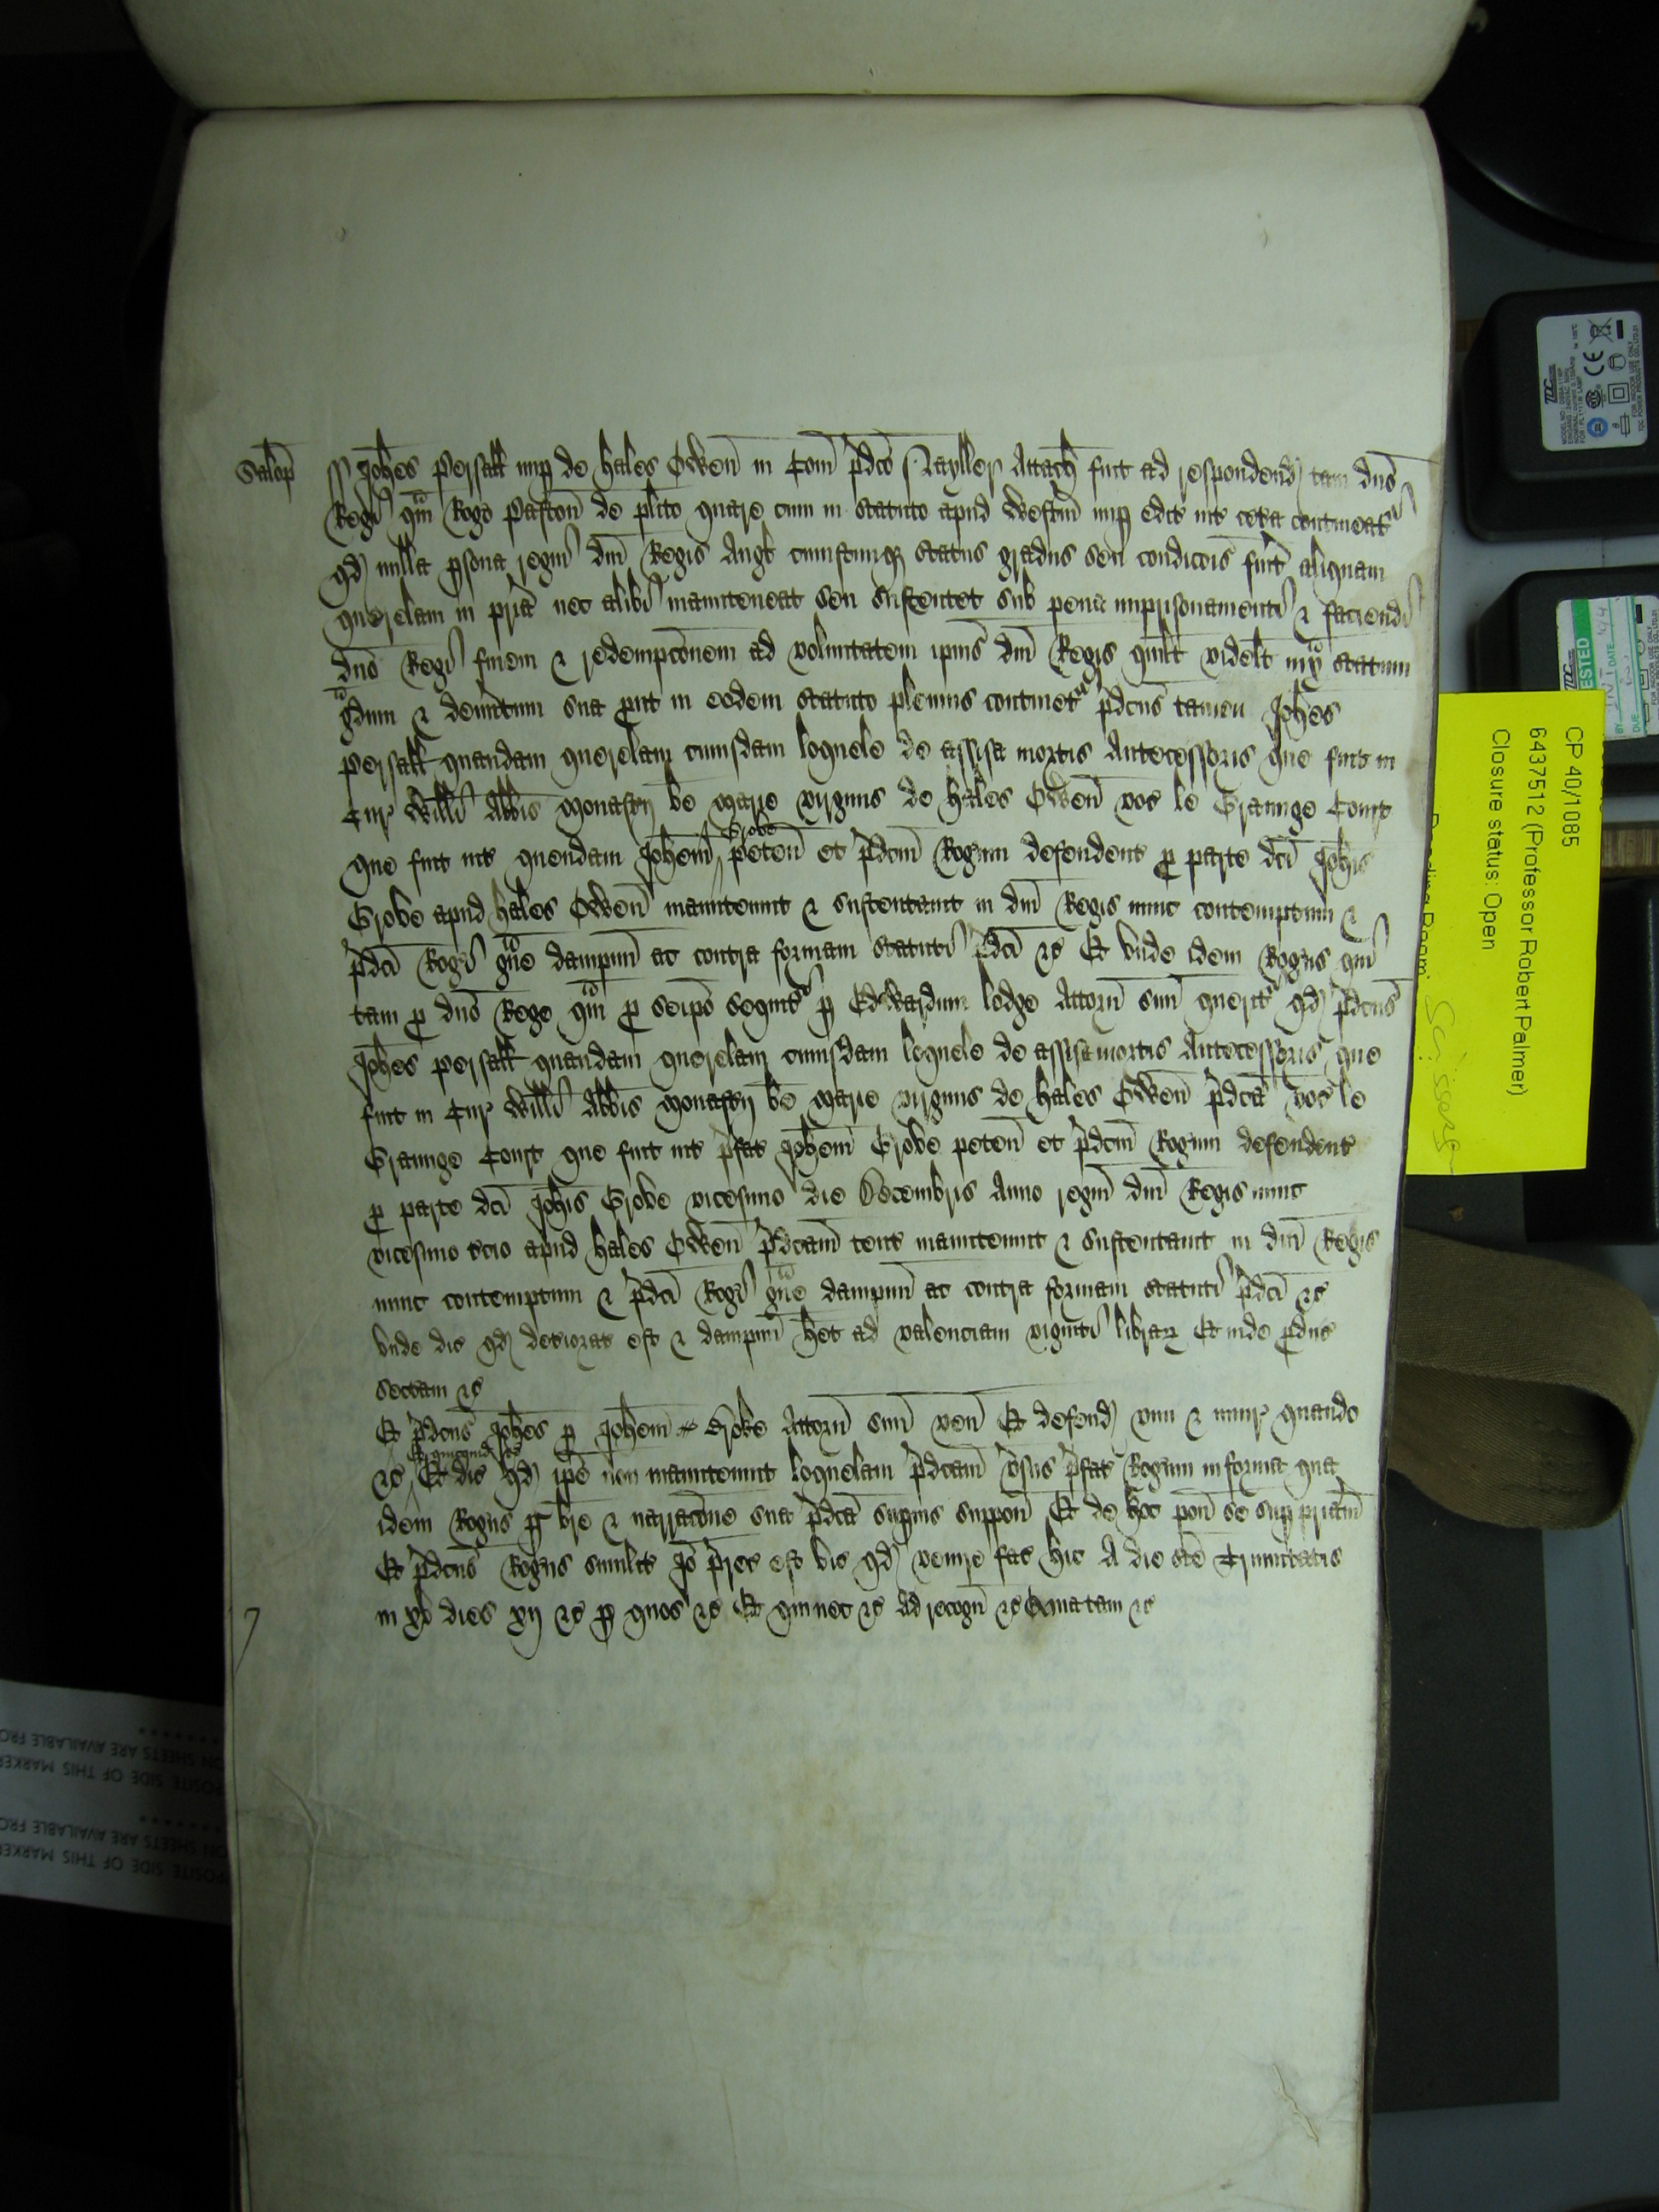 Salop ss Johes Persall nup de hales Owen in Com pdco Tayller Attach fuit ad respondend tam dno
Regi qm Rogo Paston de plito quare cum in statuto apud Westm nup edit int cetera contineat
qd nulla psona regni dni Regis Angl cuiuscumq status gradus seu condicois fuit aliquam
querelam in pria nec alibi manuteneat seu sustentet sub pena imprisonamenti & faciendi
dno Regi finem & redempconem ad voluntatem ipius dni Regis quilt videlt iux statum
gdum & demitum sua put in eodem statuto plenius continet pdcus tamen Johes
Persall quandam querelam cuiusdam loquele de assisa mortis Antecessoris que fuit in
Cur Willi Abbis Monastij be Marie virginis de hales Owen voc le Graunge Court
que fuit int quendam Johem Grove peten et pdcm Rogum defendent p parte dci Johis
Grove apud hales Owen manutenuit & sustentauit in dni Regis nunc contemptum &
pdci Rogi gue dampnu ac contra formam statuti pdci &c Et unde idem Rogus qui
tam p dno Rege qm p seipo sequit p Edwardum lodge Attorn suu querit qd pdcus
Johes Persall quandam querelam cuiusdam loquele de assisa mortis Antecessoris que
fuit in Cur Willi Abbis Monastij be Marie virginis de hales Owen pdca voc le
Graunge Court que fuit int pfat Johem Grove peten et pdcm Rogum defendent
p parte dci Johis Grove vicesimo die Decembris Anno regni dni Regis nunc
vicesimo tcio apud hales Owen pdcam tent manutenuit & sustentauit in dni Regis
nunc contemptum & pdci Rogi gue dampnu ac contra formam statuti pdci &c
unde dic qd deteriorat est & dampnu het ad valenciam viginti librar Et inde pduc
sectam &c
Et pdcus Johes p Johem Grove Attorn suu ven Et defend vim & iniur quando
&c Et quicquid &c Et dic qd ipe non manutenuit loquelam pdcam vsus pfat Rogum in forma qua
idem Rogus p bre & narracone sua pdca supius suppon Et de hoc pon se sup priam
Et pdcus Rogus similit Io prec est vic qd venire fac hic A die sce Trinitatis
in xv dies xij &c p quos &c Et qui nec &c Ad recogn &c Quia tam &c
CP 40/1085
6437512 (Professor Robert Palmer)
Closure status: Open
Reading Room
Scissors